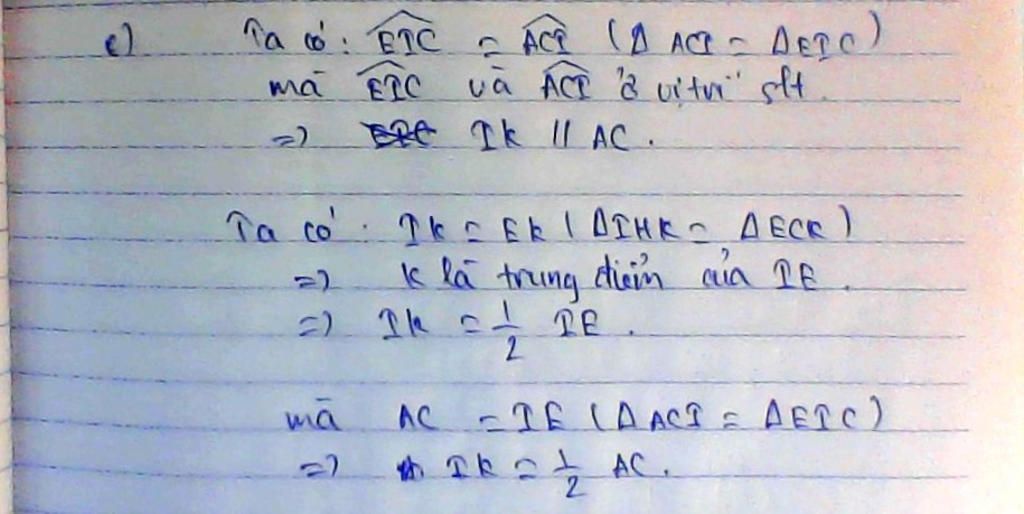 c) Ta có: \widehat{EIC} = \widehat{ACI} (Δ ACI = ΔEIC)
mà \widehat{EIC} và \widehat{ACI} ở vị trí slt.
=> IK // AC.
Ta có: IK = EK (ΔIHK = ΔECK)
=> K là trung điểm của IE.
=> IK = 1/2 IE.
mà AC = IE (ΔACI = ΔEIC)
=> IK = 1/2 AC.